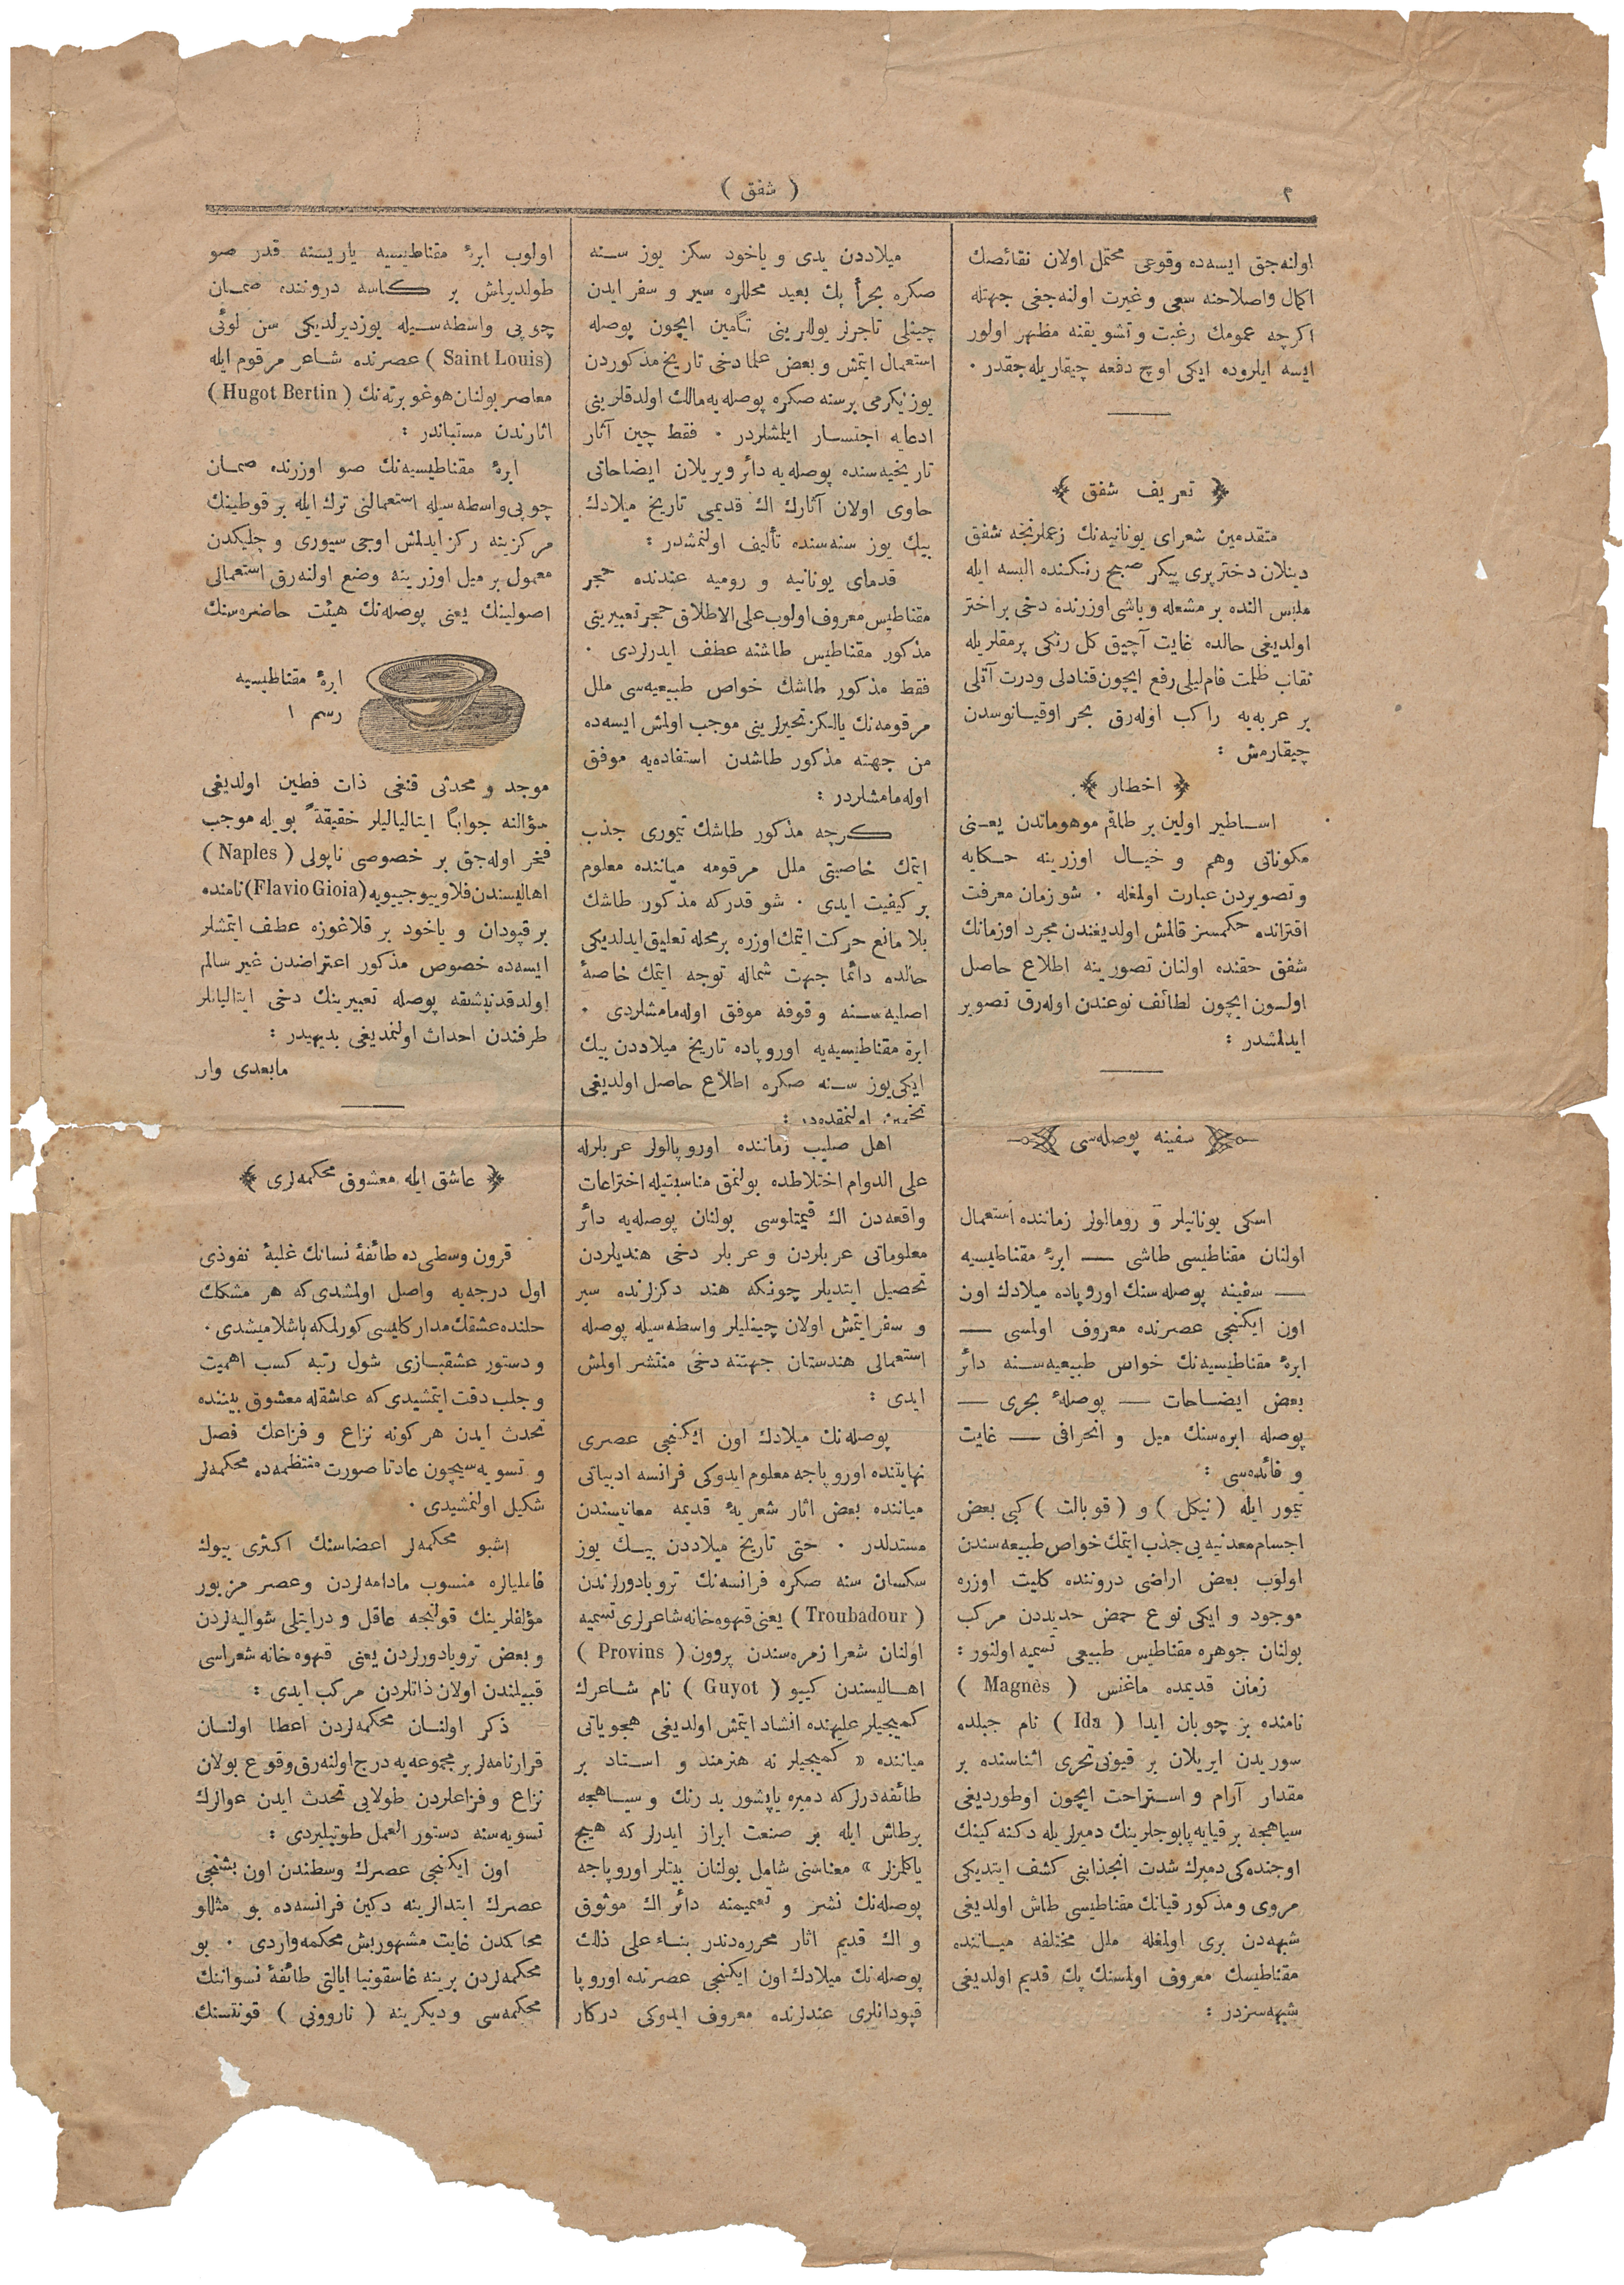 ٢
( شفق )
اولنه‌جق ایسه‌ده وقوعی محتمل اولان نقائصك
اكمال واصلاحنه سعی وغیرت اولنه‌جغی جهتله
اكرچه عمومك رغبت وتشویقنه مظهر اولور
ایسه ایلروده ایكی اوچ دفعه چیقاریله‌جقدر ٠
﴿ تعریف شفق ﴾
متقدمین شعرای یونانیه‌نك زعملرنجه شفق
دینلان دختر پری پیكر صبح رنكنده البسه ایله
ملبس النده بر مشعله وباشی اوزرنده دخی بر اختر
اولدیغی حالده غایت آچیق كل رنكی پرمقلریله
نقاب ظلمت فام لیلی رفع ایچون قنادلی ودرت آتلی
بر عربه‌یه راكب اوله‌رق بحر اوقیانوسدن
چیقارمش :
﴿ اخطار ﴾
اساطیر اولین بر طاقم موهوماتدن یعنی
مكوناتی وهم و خیال اوزرینه حكایه
وتصویردن عبارت اولمغله ٠ شو زمان معرفت
اقترانده حكمسز قالمش اولدیغندن مجرد اوزمانك
شفق حقنده اولنان تصورینه اطلاع حاصل
اولسون ایچون لطائف نوعندن اوله‌رق تصویر
ایدلمشدر :
سفینه پوصله‌سی
اسكی یونانیلر و رومالولر زماننده استعمال
اولنان مقناطیسی طاشی — ابرۀ مقناطیسیه
— سفینه پوصله‌سنك اوروپاده میلادك اون
اون ایكنجی عصرنده معروف اولمسی —
ابرۀ مقناطیسیه‌نك خواص طبیعیه‌سنه دائر
بعض ایضاحات — پوصلۀ بحری —
پوصله ابره‌سنك میل و انحرافی — غایت
و فائده‌سی :
تیمور ایله ( نیكل ) و ( قوبالت ) كبی بعض
اجسام معدنیه‌یی جذب ایتمك خواص طبیعه‌سندن
اولوب بعض اراضی دروننده كلیت اوزره
موجود و ایكی نوع حمض حدیددن مركب
بولنان جوهره مقناطیس طبیعی تسمیه اولنور :
زمان قدیمده ماغنس ( Magnès )
نامنده بر چوبان ایدا ( Ida ) نام جبلده
سوریدن ایریلان بر قیونی تحری اثناسنده بر
مقدار آرام و استراحت ایچون اوطوردیغی
سیاهجه بر قیایه پابوجلرینك دمیرلریله دكنه‌كینك
اوجنده‌كی دمیرك شدت انجذابنی كشف ایتدیكی
مروی ومذكور قیانك مقناطیسی طاش اولدیغی
شبهه‌دن بری اولمغله ملل مختلفه میاننده
مقناطیسك معروف اولمسنك پك قدیم اولدیغی
شبهه‌سزدر :
میلاددن یدی و یاخود سكز یوز سنه
صكره بحرأ پك بعید محللره سیر و سفر ایدن
چینلی تاجرلر یوللرینی تأمین ایچون پوصله
استعمال ایتمش وبعض علما دخی تاریخ مذكوردن
یوز یكرمی بر سنه صكره پوصله‌یه مالك اولدقلرینی
ادعایه اجتسار ایلمشلردر ٠ فقط چین آثار
تاریخیه‌سنده پوصله‌یه دائر ویریلان ایضاحاتی
حاوی اولان آثارك اك قدیمی تاریخ میلادك
بیك یوز سنه‌سنده تألیف اولنمشدر :
قدمای یونانیه و رومیه عندنده حجر
مقناطیس معروف اولوب علی الاطلاق حجر تعبیرینی
مذكور مقناطیس طاشنه عطف ایدرلردی ٠
فقط مذكور طاشك خواص طبیعیه‌سی ملل
مرقومه‌نك یالكز تحیرلرینی موجب اولمش ایسه‌ده
من جهته مذكور طاشدن استفاده‌یه موفق
اوله‌مامشلردر :
كرچه مذكور طاشك تیموری جذب
ایتمك خاصیتی ملل مرقومه میاننده معلوم
بر كیفیت ایدی ٠ شو قدركه مذكور طاشك
بلا مانع حركت ایتمك اوزره بر محله تعلیق ایدلدیكی
حالده دائما جهت شماله توجه ایتمك خاصۀ
اصلیه‌سنه وقوفه موفق اوله‌مامشلردی ٠
ابرۀ مقناطیسیه‌یه اوروپاده تاریخ میلاددن بیك
ایكی‌یوز سنه صكره اطلاع حاصل اولدیغی
تخمین اولنمقده‌در :
اهل صلیب زماننده اوروپالولر عربلرله
علی الدوام اختلاطده بولنمق مناسبتیله اختراعات
واقعه‌دن اك قیمتلوسی بولنان پوصله‌یه دائر
معلوماتی عربلردن وعربلر دخی هندیلردن
تحصیل ایتدیلر چونكه هند دكزلرنده سیر
و سفر ایتمش اولان چینلیلر واسطه‌سیله پوصله
استعمالی هندستان جهتنه دخی منتشر اولمش
ایدی :
پوصله‌نك میلادك اون ایكنجی عصری
نهایتنده اوروپاجه معلوم ایدوكی فرانسه ادبیاتی
میاننده بعض اثار شعریۀ قدیمه معانیسندن
مستدلدر ٠ حتی تاریخ میلاددن بیك یوز
سكسان سنه صكره فرانسه‌نك تروبادورلرندن
( Troubadour ) یعنی قهوه‌خانه شاعرلری تسمیه
اولنان شعرا زمره‌سندن پروون ( Provins )
اهالیسندن كییو ( Guyot ) نام شاعرك
كمیجیلر علیهنده انشاد ایتمش اولدیغی هجویاتی
میاننده « كمیجیلر نه هنرمند و استاد بر
طائفه‌درلركه دمیره یاپشور بد رنك و سیاهجه
بر طاش ایله بر صنعت ابراز ایدرلر كه هیچ
یاكلمزلر » معناسنی شامل بولنان بیتلر اوروپاجه
پوصله‌نك نشر و تعمیمنه دائر اك موثوق
و اك قدیم اثار محرره‌دندر بناء علی ذلك
پوصله‌نك میلادك اون ایكنجی عصرنده اوروپا
قپودانلری عندلرنده معروف ایدوكی دركار
اولوب ابرۀ مقناطیسیه یاریسنه قدر صو
طولدیرلمش بر كاسه دروننده صمان
چوپی واسطه‌سیله یوزدیرلدیكی سن لوئی
(Saint Louis) عصرنده شاعر مرقوم ایله
معاصر بولنان هوغو برته‌نك ( Hugot Bertin )
اثارندن مستباندر :
ابرۀ مقناطیسیه‌نك صو اوزرنده صمان
چوپی واسطه‌سیله استعمالنی ترك ایله بر قوطینك
مركزینه ركز ایدلمش اوجی سیوری و چلیكدن
معمول بر میل اوزرینه وضع اولنه‌رق استعمالی
اصولینك یعنی پوصله‌نك هیئت حاضره‌سنك
ابرۀ مقناطیسیه
رسم ١
موجد و محدثی قنغی ذات فطین اولدیغی
سؤالنه جوابًا ایتالیالیلر حقیقةً بویله موجب
فخر اوله‌جق بر خصوصی ناپولی ( Naples )
اهالیسندن فلاویو جییویه (Flavio Gioia) نامنده
بر قپودان و یاخود بر قلاغوزه عطف ایتمشلر
ایسه‌ده خصوص مذكور اعتراضدن غیر سالم
اولدقدنبشقه پوصله تعبیرینك دخی ایتالیانلر
طرفندن احداث اولنمدیغی بدیهیدر :
مابعدی وار
﴿ عاشق ایله معشوق محكمه‌لری ﴾
قرون وسطی‌ده طائفۀ نسانك غلبۀ نفوذی
اول درجه‌یه واصل اولمشدی‌كه هر مشكلك
حلنده عشقك مداركلیسی كورلمكه باشلامیشدی ٠
و دستور عشقبازی شول رتبه كسب اهمیت
و جلب دقت ایتمشیدی كه عاشقله معشوق بیننده
تحدث ایدن هر كونه نزاع و فزاعك فصل
و تسویه‌سیچون عادتا صورت منتظمه‌ده محكمه‌لر
شكیل اولنمشیدی ٠
اشبو محكمه‌لر اعضاسنك اكثری بیوك
فامیلیالره منسوب مادامه‌لردن وعصر مزبور
مؤلفلرینك قولنجه عاقل و درایتلی شوالیه‌لردن
وبعض تروبادورلردن یعنی قهوه‌خانه شعراسی
قبیلندن اولان ذاتلردن مركب ایدی :
ذكر اولنان محكمه‌لردن اعطا اولنان
قرارنامه‌لر بر مجموعه‌یه درج اولنه‌رق وقوع بولان
نزاع وفزاعلردن طولایی تحدث ایدن
تسویه‌سنه دستور العمل طوتیلیردی :
اون ایكنجی عصرك وسطندن اون بشنجی
عصرك ابتدالرینه دكین فرانسه‌ده بو مثللو
محاكمدن غایت مشهور بش محكمه واردی ٠ بو
محكمه‌لردن برینه غاسقونیا ایالتی طائفۀ نسواننك
محكمه‌سی ودیكرینه ( ناروونی ) قونتسنك